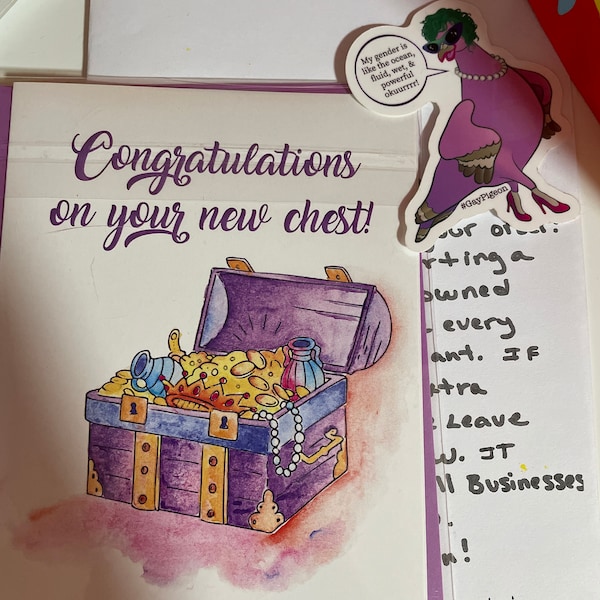 Congratulations
on your new chest!
My gender is
like the ocean,
fluid, wet, &
powerful
okuurrrr!
#GayPigeon
rting a
owned
every
ant. IF
tra
Leave
w. IT
ll Businesses